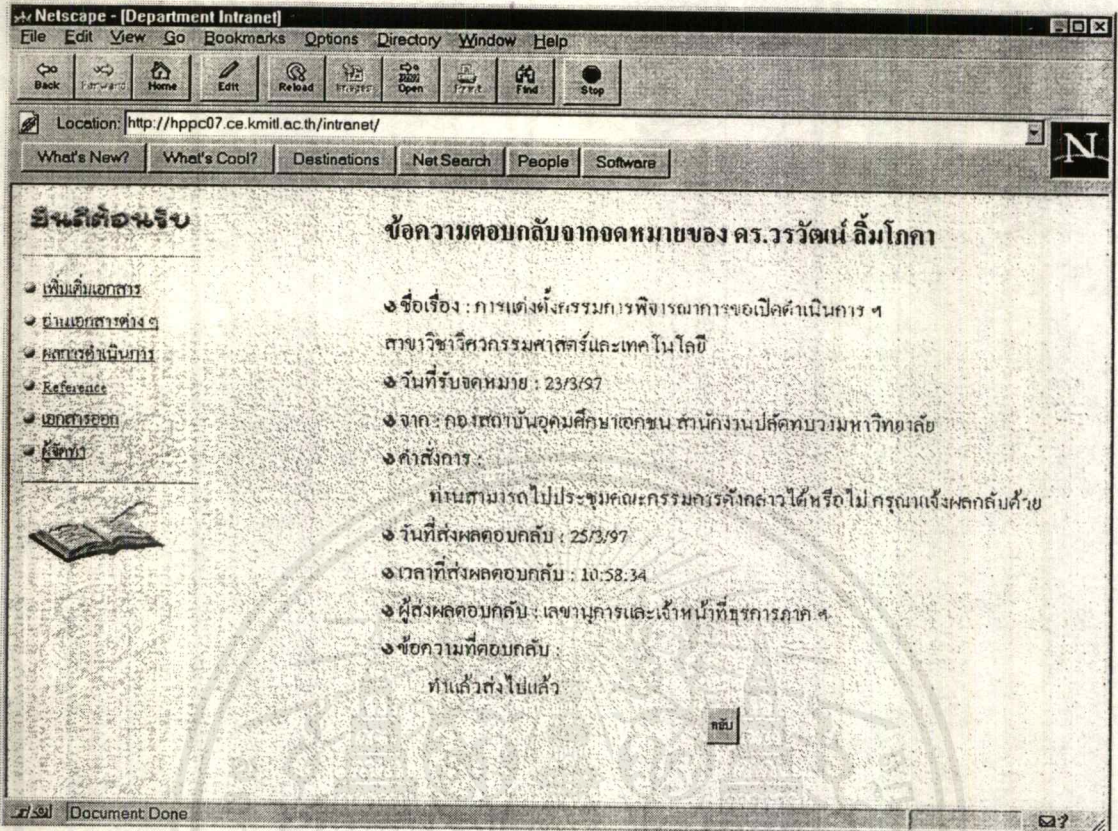 Netscape - [Department Intranet]
File Edit View Go Bookmarks Options Directory Window Help
Back Forward Home Edit Reload Images Open Print Find Stop
Location: http://hppc07.ce.kmitl.ac.th/intranet/
What's New? What's Cool? Destinations Net Search People Software
N
ยินดีต้อนรับ
เพิ่มเติมเอกสาร
อ่านเอกสารต่าง ๆ
ผลการดำเนินการ
Reference
เอกสารออก
ผู้จัดทำ
ข้อความตอบกลับจากจดหมายของ ดร.วรวัฒน์ ลิ้มโภคา
ชื่อเรื่อง : การแต่งตั้งกรรมการพิจารณาการขอเปิดดำเนินการ ฯ
สาขาวิชาวิศวกรรมศาสตร์และเทคโนโลยี
วันที่รับจดหมาย : 23/3/97
จาก : กองสถาบันอุดมศึกษาเอกชน สำนักงานปลัดทบวงมหาวิทยาลัย
คำสั่งการ :
ท่านสามารถไปประชุมคณะกรรมการดังกล่าวได้หรือไม่ กรุณาแจ้งผลกลับด้วย
วันที่ส่งผลตอบกลับ : 25/3/97
เวลาที่ส่งผลตอบกลับ : 10:58:34
ผู้ส่งผลตอบกลับ : เลขานุการและเจ้าหน้าที่ธุรการภาค ฯ
ข้อความที่ตอบกลับ :
ทำแล้วส่งไปแล้ว
กลับ
Document: Done